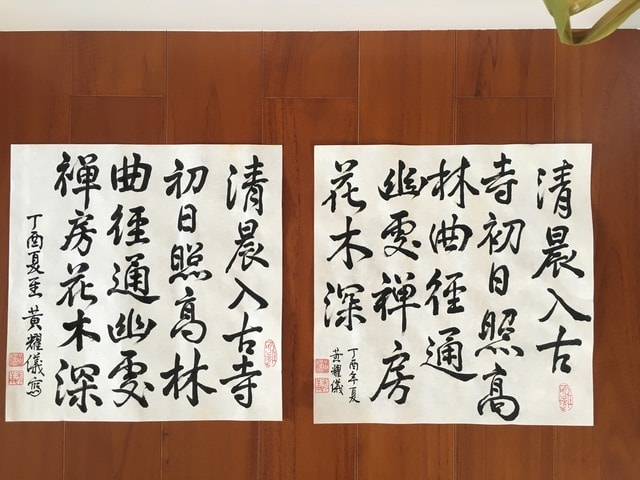 清晨入古寺
初日照高林
曲徑通幽處
禅房花木深
丁酉夏至 黄耀儀寫
清晨入古
寺初日照高
林曲徑通
幽處禅房
花木深
丁酉年夏
黄耀儀